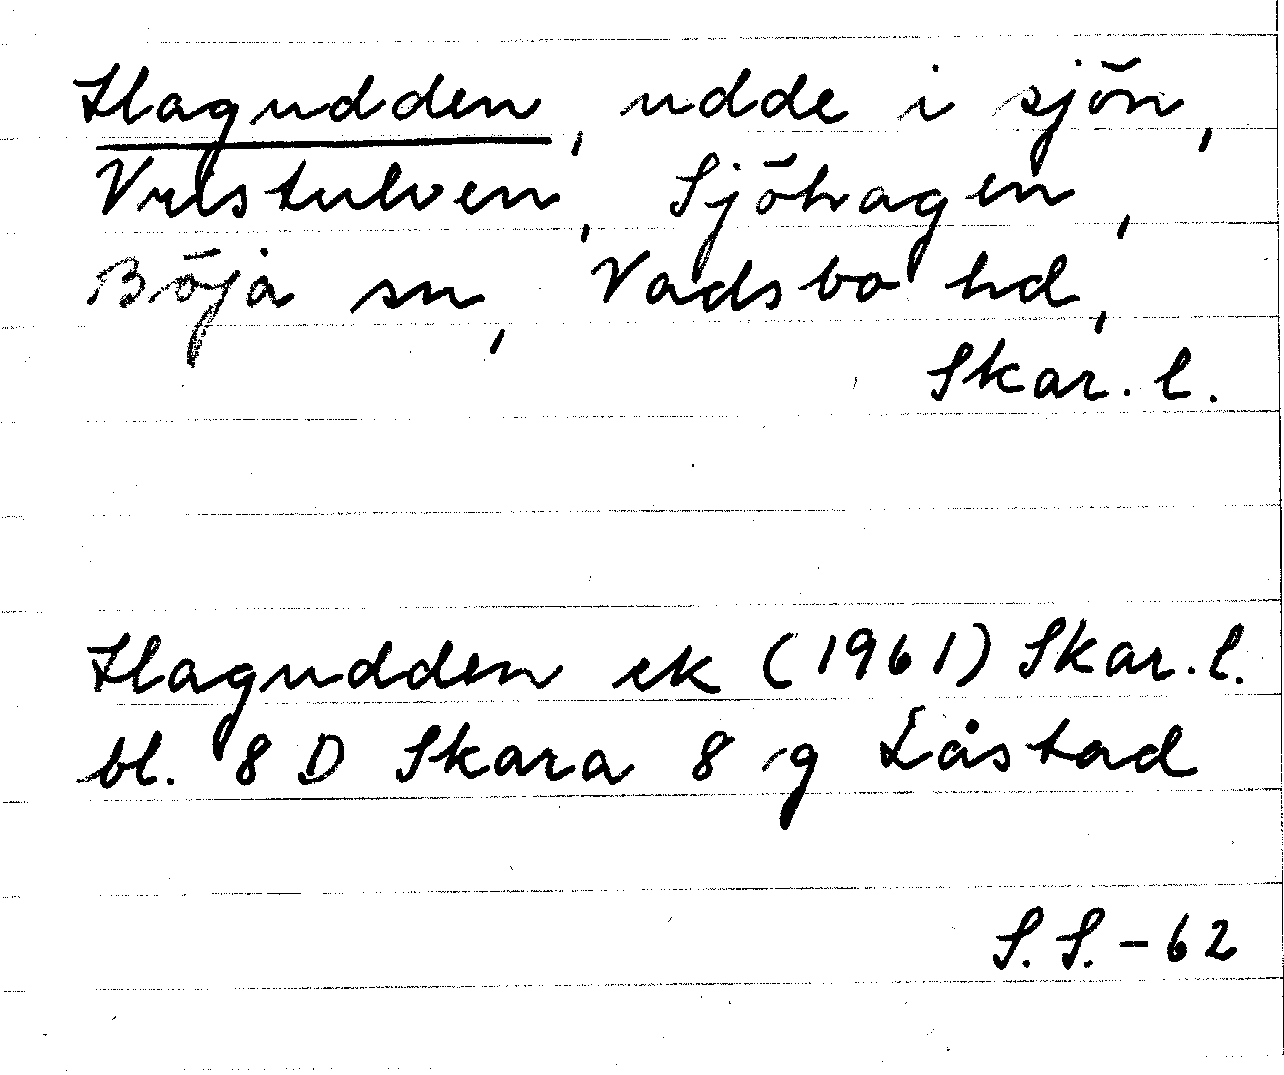 Hagudden, udde i sjön,
Vristulven, Sjöhagen,
Böja sn, Vadsbo hd,
Skar. l.
Hagudden ek (1961) Skar. l.
bl. 8 D Skara 8 g Låstad
S. S. - 62